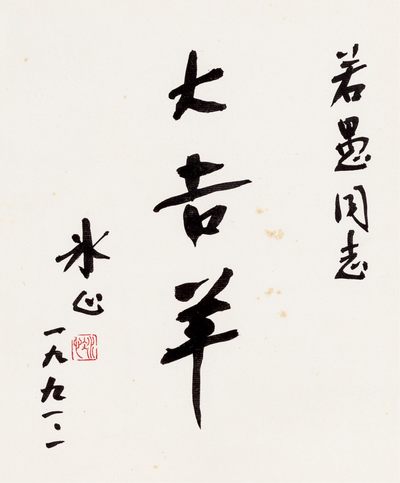 若愚同志
大吉羊
冰心
一九九一、一